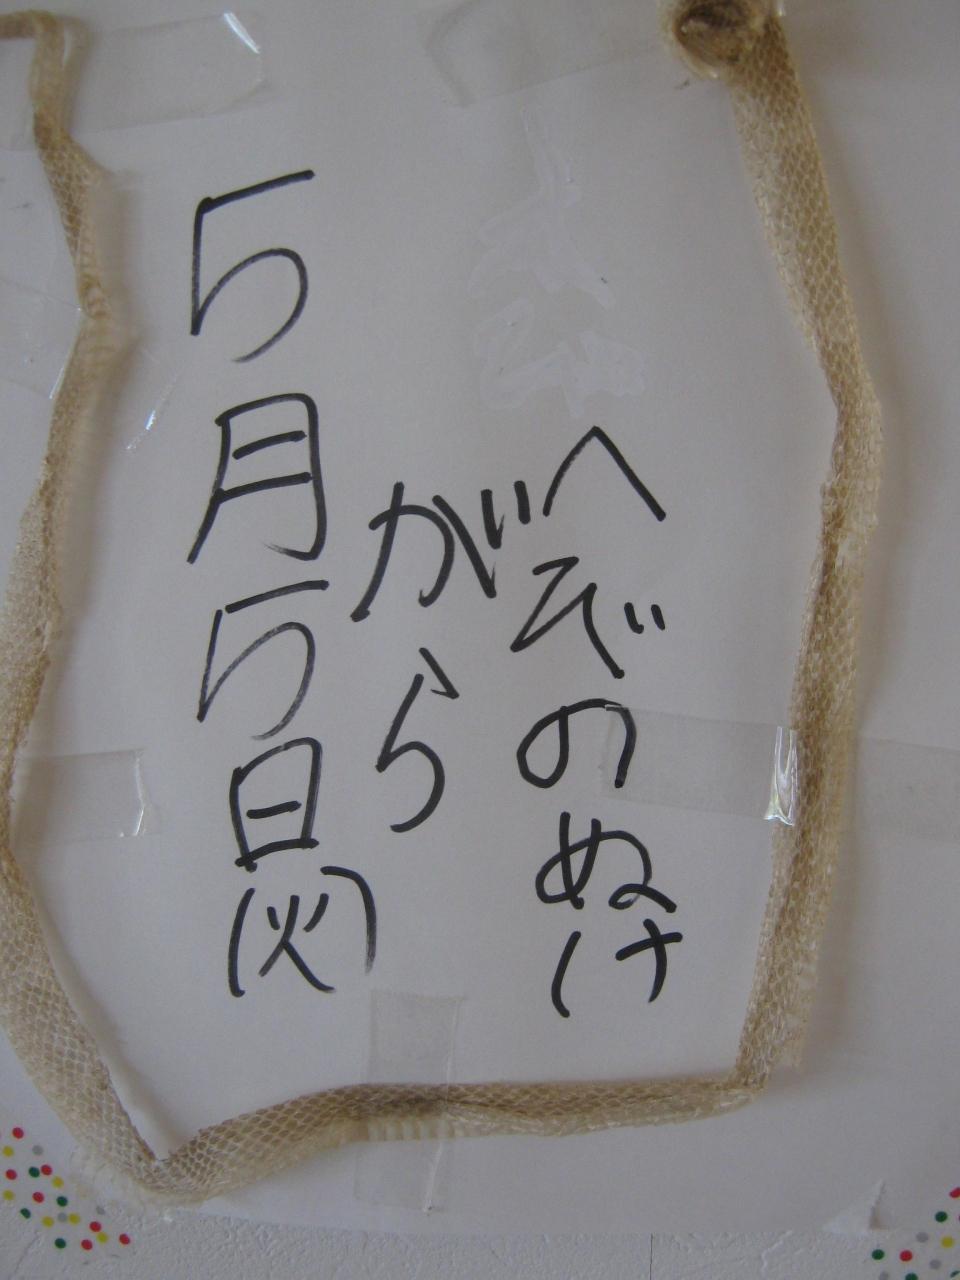 へびのぬけ
がら
5月5日(火)